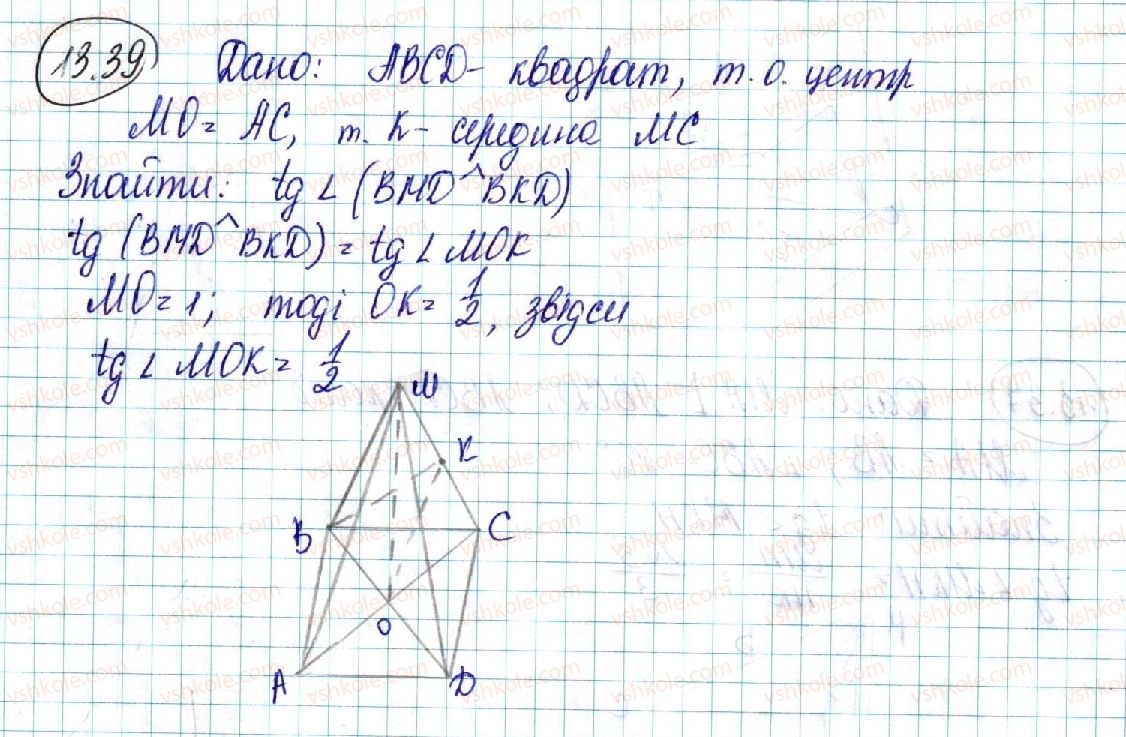 13.39 Дано: ABCD- квадрат, т.о. центр
MO= AC, т. К- середина MC
Знайти: tg ∠ (BMD^BKD)
tg (BMD^BKD) = tg ∠ MOK
MO=1; тоді OK= 1/2, звідси
tg ∠ MOK = 1/2
M
K
B
C
O
A
D
vshkole.com